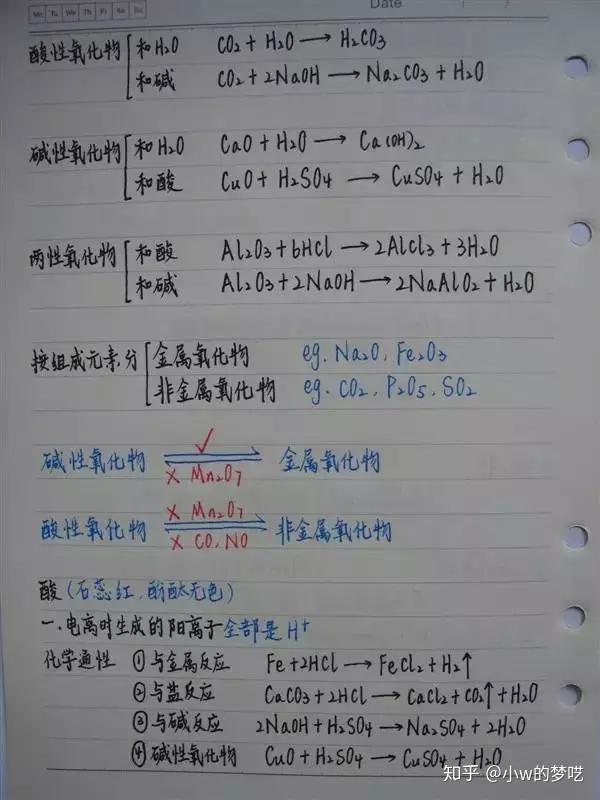 Mo Tu We Th Fr Sa Su Date
酸性氧化物 和H2O CO2 + H2O → H2CO3
和碱 CO2 + 2NaOH → Na2CO3 + H2O
碱性氧化物 和H2O CaO + H2O → Ca(OH)2
和酸 CuO + H2SO4 → CuSO4 + H2O
两性氧化物 和酸 Al2O3 + 6HCl → 2AlCl3 + 3H2O
和碱 Al2O3 + 2NaOH → 2NaAlO2 + H2O
按组成元素分 金属氧化物 eg. Na2O, Fe2O3
非金属氧化物 eg. CO2, P2O5, SO2
✓
碱性氧化物 ⇌ 金属氧化物
× Mn2O7
× Mn2O7
酸性氧化物 ⇌ 非金属氧化物
× CO, NO
酸(石蕊红,酚酞无色)
一.电离时生成的阳离子全部是H+
化学通性 ①与金属反应 Fe + 2HCl → FeCl2 + H2↑
②与盐反应 CaCO3 + 2HCl → CaCl2 + CO2↑ + H2O
③与碱反应 2NaOH + H2SO4 → Na2SO4 + 2H2O
④碱性氧化物 CuO + H2SO4 → CuSO4 + H2O
知乎 @小w的梦呓